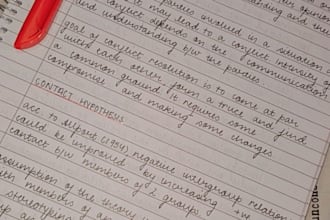 parties involved in a situation
it may lead to a conflict intensity
conflict depends on the communication
and understanding b/w the parties
goal of conflict resolution is to come at par
with each other, form a truce and find
a common ground it requires some
compromise and making some changes
CONTACT HYPOTHESIS
acc to Allport (1954) negative intergroup relation
could be improved by increasing the
contact b/w members of groups
assumption of the theory
with members of
stereotyping